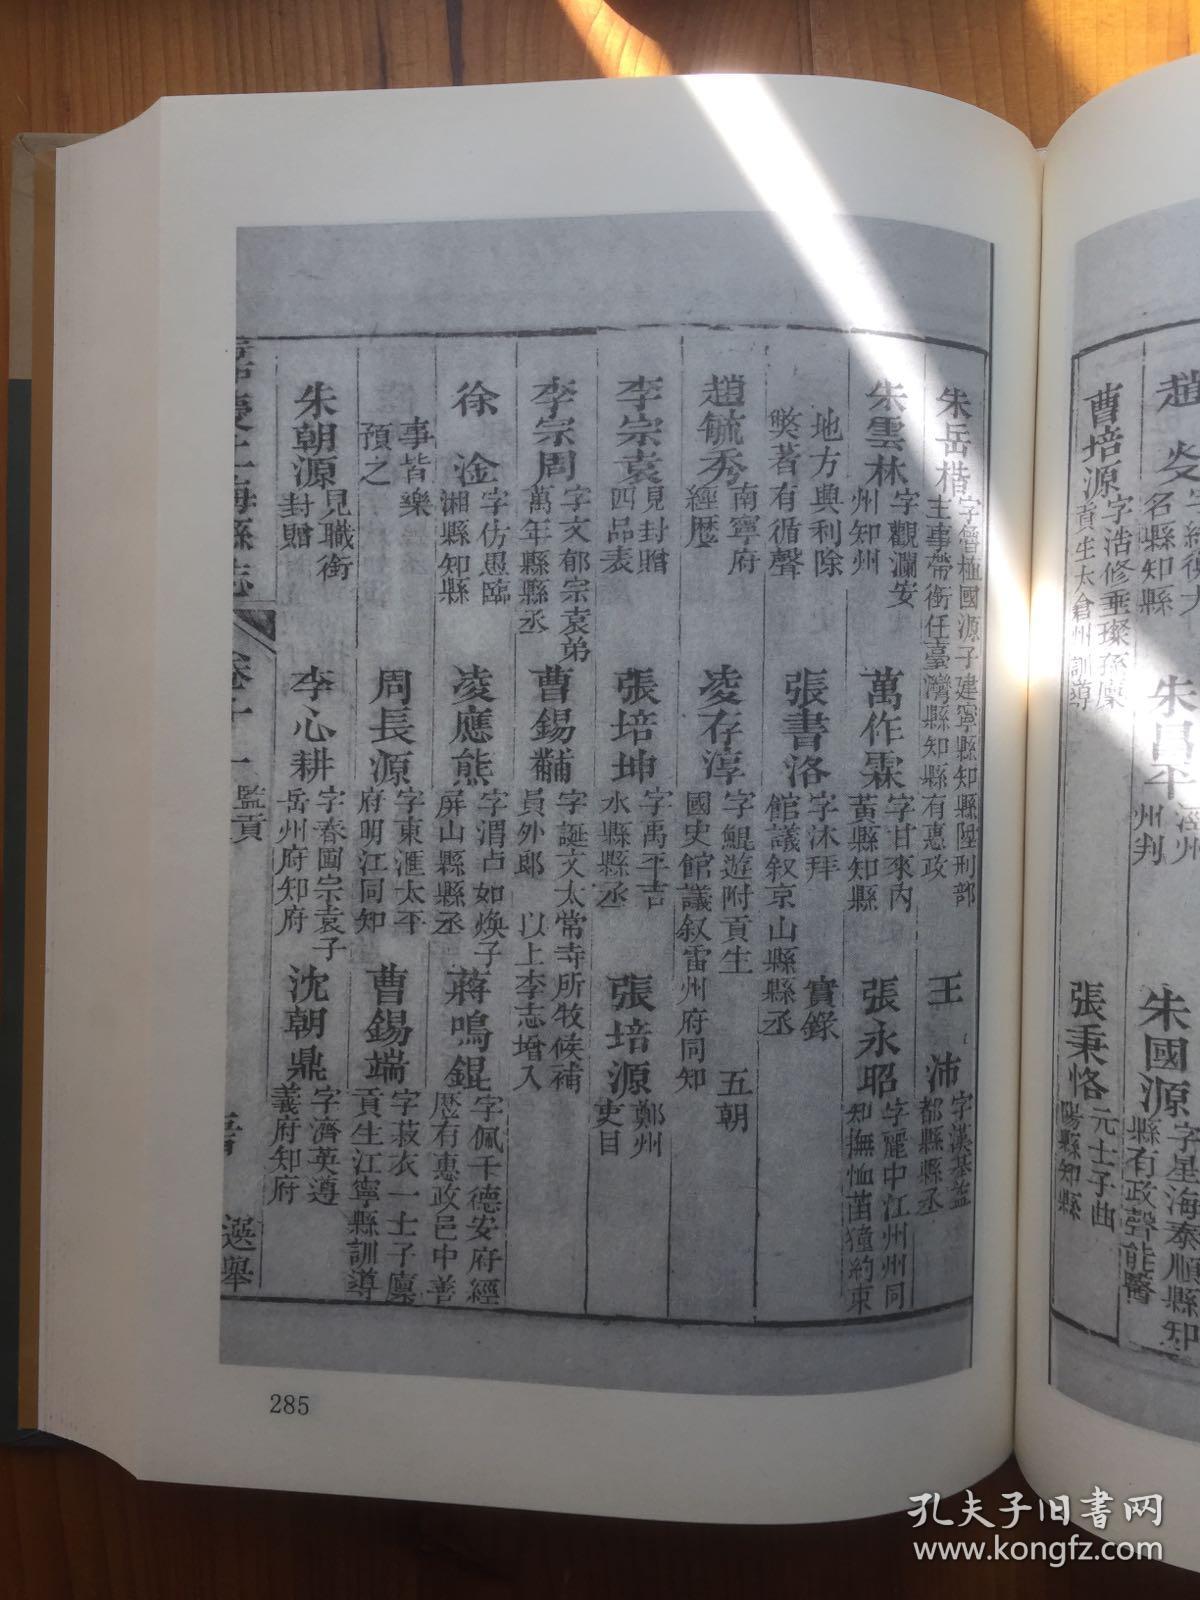 趙
名縣知縣
朱昌平
州判
朱國源
字星海泰順縣知
縣有政聲能醫
曹培源
字浩修垂璨孫廩
貢生太倉州訓導
張秉恪
元士子曲
陽縣知縣
朱岳楷
字曾植國源子建寧縣知縣陞刑部
主事帶銜任臺灣縣知縣有惠政
王沛
字漢基益
都縣縣丞
朱雲林
字觀瀾安
州知州
萬作霖
字甘來內
黃縣知縣
張永昭
字麗中江州州同
知撫恤苗獞約束
地方興利除
獘著有循聲
張書洛
字沐拜
實錄
館議叙京山縣縣丞
趙毓秀
南寧府
經歷
凌存淳
字鯤遊附貢生
五朝
國史館議叙雷州府同知
李宗袁
見封贈
四品表
張培坤
字禹平吉
水縣縣丞
張培源
鄭州
吏目
李宗周
字文郁宗袁弟
萬年縣縣丞
曹錫黼
字誕文太常寺所牧候補
員外郎
以上李志增入
徐淦
字仿愚臨
湘縣知縣
凌應熊
字渭占如煥子
屏山縣縣丞
蔣鳴錕
字佩千德安府經
歷有惠政邑中善
事皆樂
預之
周長源
字東滙太平
府明江同知
曹錫端
字菽衣一士子廩
貢生江寧縣訓導
朱朝源
見職銜
封贈
李心耕
字春圃宗袁子
岳州府知府
沈朝鼎
字濟英遵
義府知府
嘉慶上海縣志
卷十一
監貢
選舉
285
孔夫子旧書网
www.kongfz.com